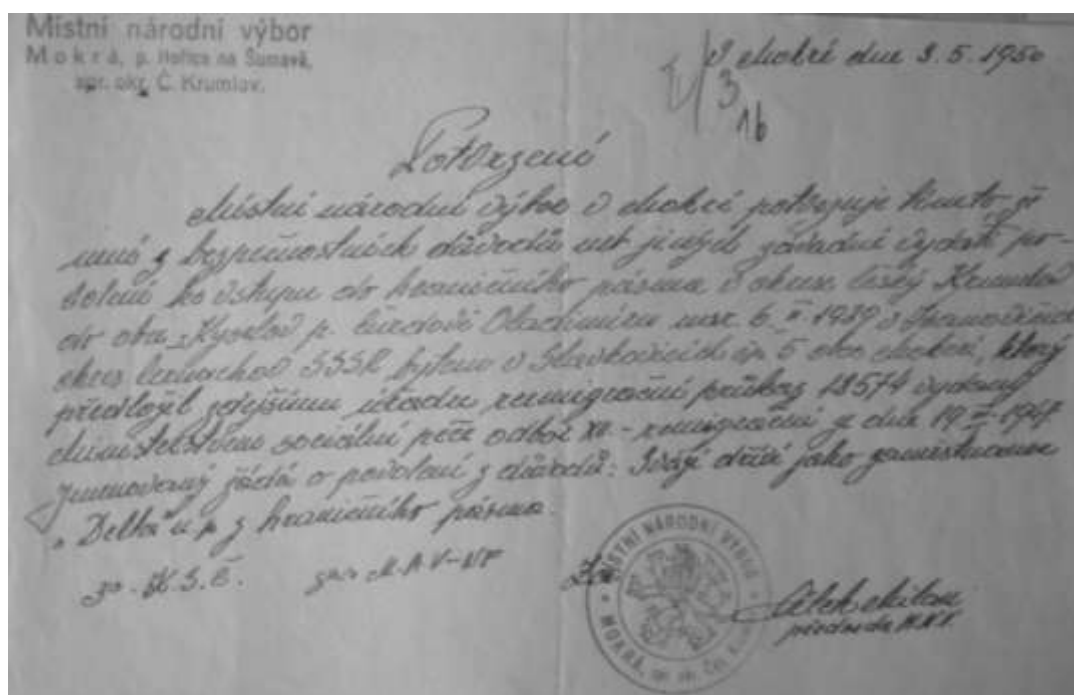 Místní národní výbor
Mokrá, p. Hořice na Šumavě,
spr. okr. Č. Krumlov.
V Mokré dne 3.5.1950
3
16
Potvrzení
Místní národní výbor v Mokré potvrzuje tímto že
není z bezpečnostních důvodů ani jiných závadné vydati po-
volení ke vstupu do hraničního pásma v okrese Český Krumlov
do obce Kyselov p. Vladimíru nar. 6. II 1929 v
okres SSSR bytem v Slavkovicích čp. 5 obec Mokré, který
předložil zdejšímu úřadu remigrační průkaz 18574 vydaný
Ministerstvem sociální péče odbor XII - remigrační z dne 19 1947
Jmenovaný žádá o povolení z důvodů: Sváží dříví jako zaměstnanec
"Delta" n.p. z hraničního pásma.
Za
MÍSTNÍ NÁRODNÍ VÝBOR
MOKRÁ, spr. okr. Čes.
Milan
předseda M.N.V.